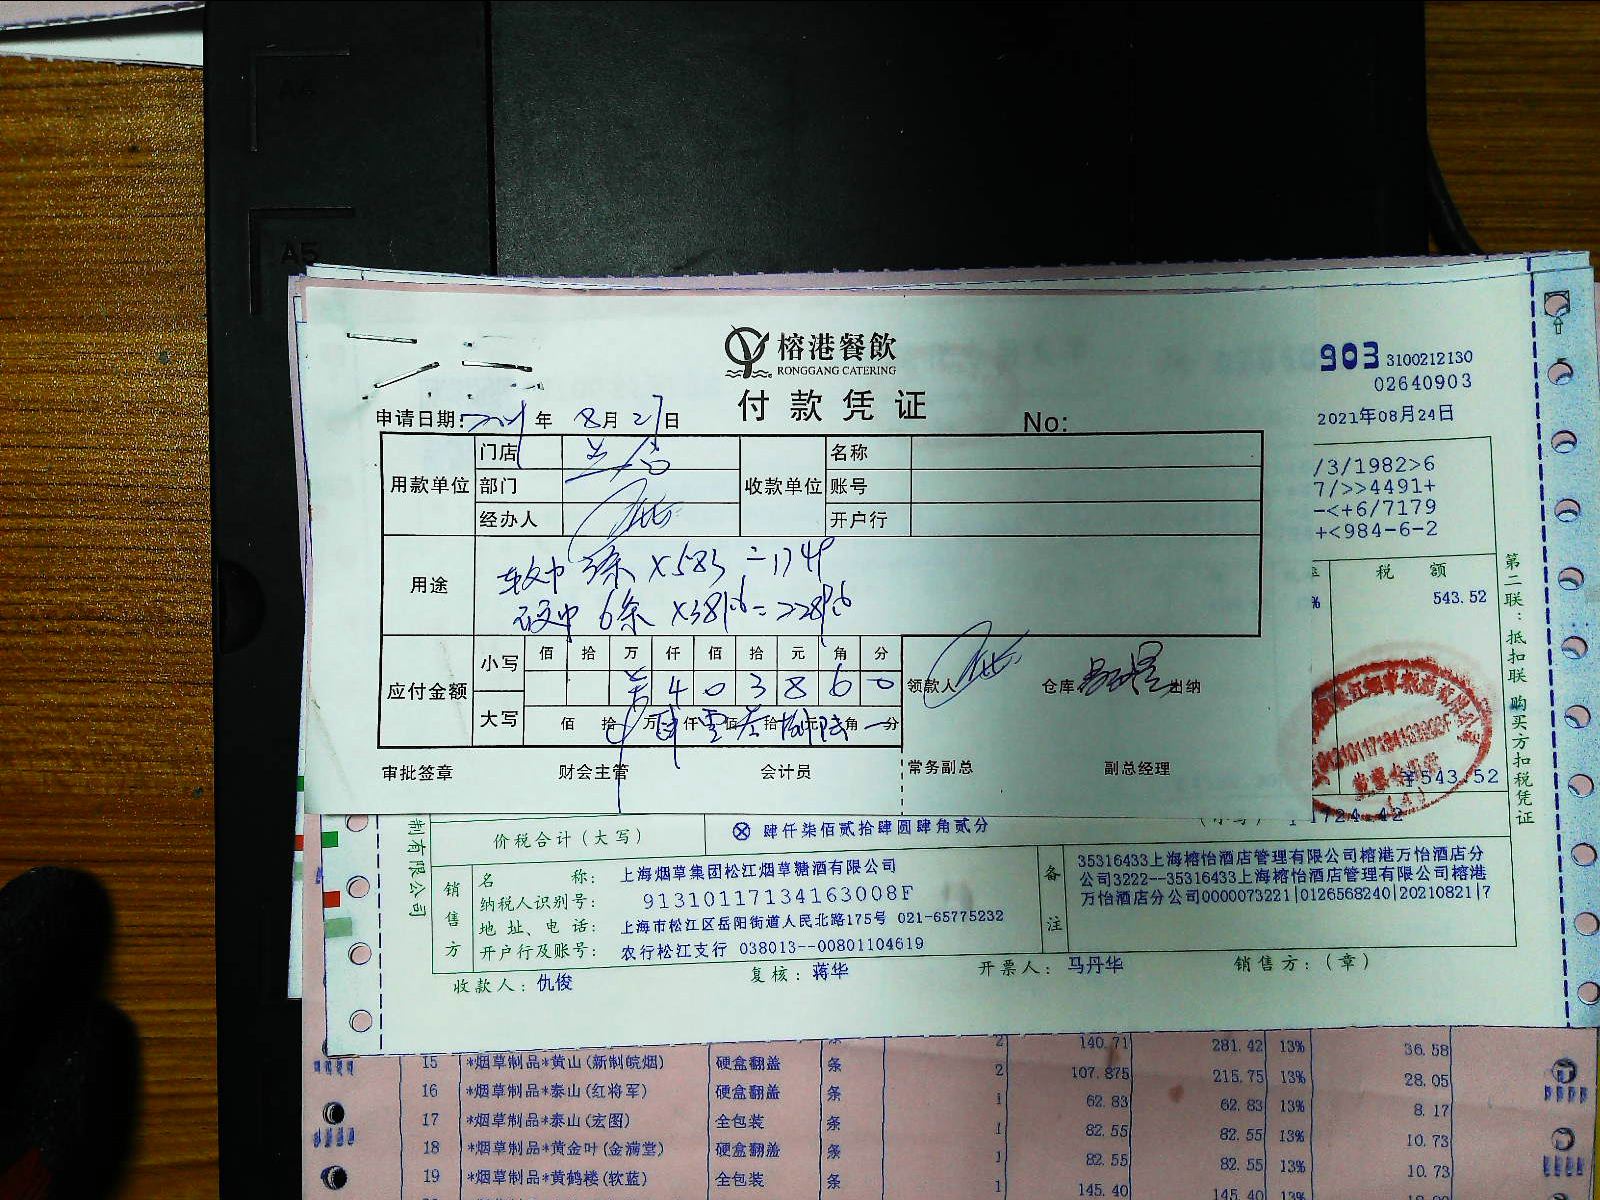 A4
A5
榕港餐飲
RONGGANG CATERING
付款凭证
申请日期: 2021 年 8月 27日
No:
903 3100212130
02640903
2021年08月24日
用款单位 门店
部门
经办人
收款单位 名称
账号
开户行
/3/1982>6
7/>>4491+
-<+6/7179
+<984-6-2
用途
软中 3条 X583 = 1749
硬中 6条 X381.6 = 2289.6
税 额
% 543.52
应付金额 小写 佰 拾 万 仟 佰 拾 元 角 分
4 0 3 8 6 0
大写 佰 拾 万 仟 佰 拾 元 角 分
领款人 仓库 出纳
审批签章 财会主管 会计员 常务副总 副总经理
¥543.52
第二联：抵扣联 购买方扣税凭证
制有限公司
价税合计(大写) ⊗ 肆仟柒佰贰拾肆圆肆角贰分 724.42
销售方
名 称: 上海烟草集团松江烟草糖酒有限公司
纳税人识别号: 91310117134163008F
地 址、电 话: 上海市松江区岳阳街道人民北路175号 021-65775232
开户行及账号: 农行松江支行 038013--00801104619
备注
35316433上海榕怡酒店管理有限公司榕港万怡酒店分
公司3222--35316433上海榕怡酒店管理有限公司榕港
万怡酒店分公司0000073221|0126568240|20210821|7
收款人: 仇俊 复核: 蒋华 开票人: 马丹华 销售方: (章)
15 *烟草制品*黄山(新制皖烟) 硬盒翻盖 条 2 140.71 281.42 13% 36.58
16 *烟草制品*泰山(红将军) 硬盒翻盖 条 2 107.875 215.75 13% 28.05
17 *烟草制品*泰山(宏图) 全包装 条 1 62.83 62.83 13% 8.17
18 *烟草制品*黄金叶(金满堂) 硬盒翻盖 条 1 82.55 82.55 13% 10.73
19 *烟草制品*黄鹤楼(软蓝) 全包装 条 1 82.55 82.55 13% 10.73
1 145.40 145.40 13%